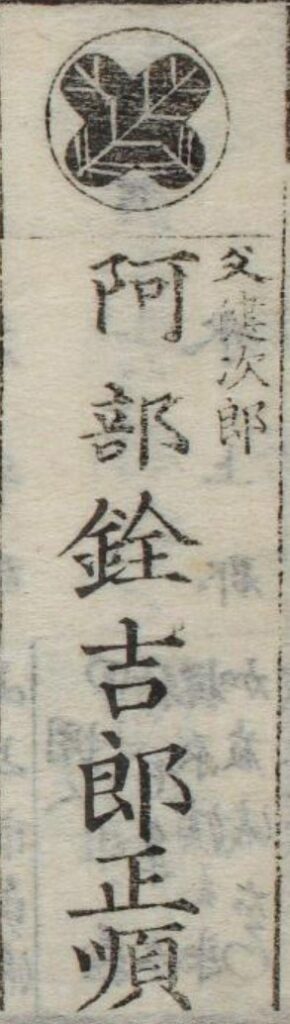 父健次郎
阿部銓吉郎正順